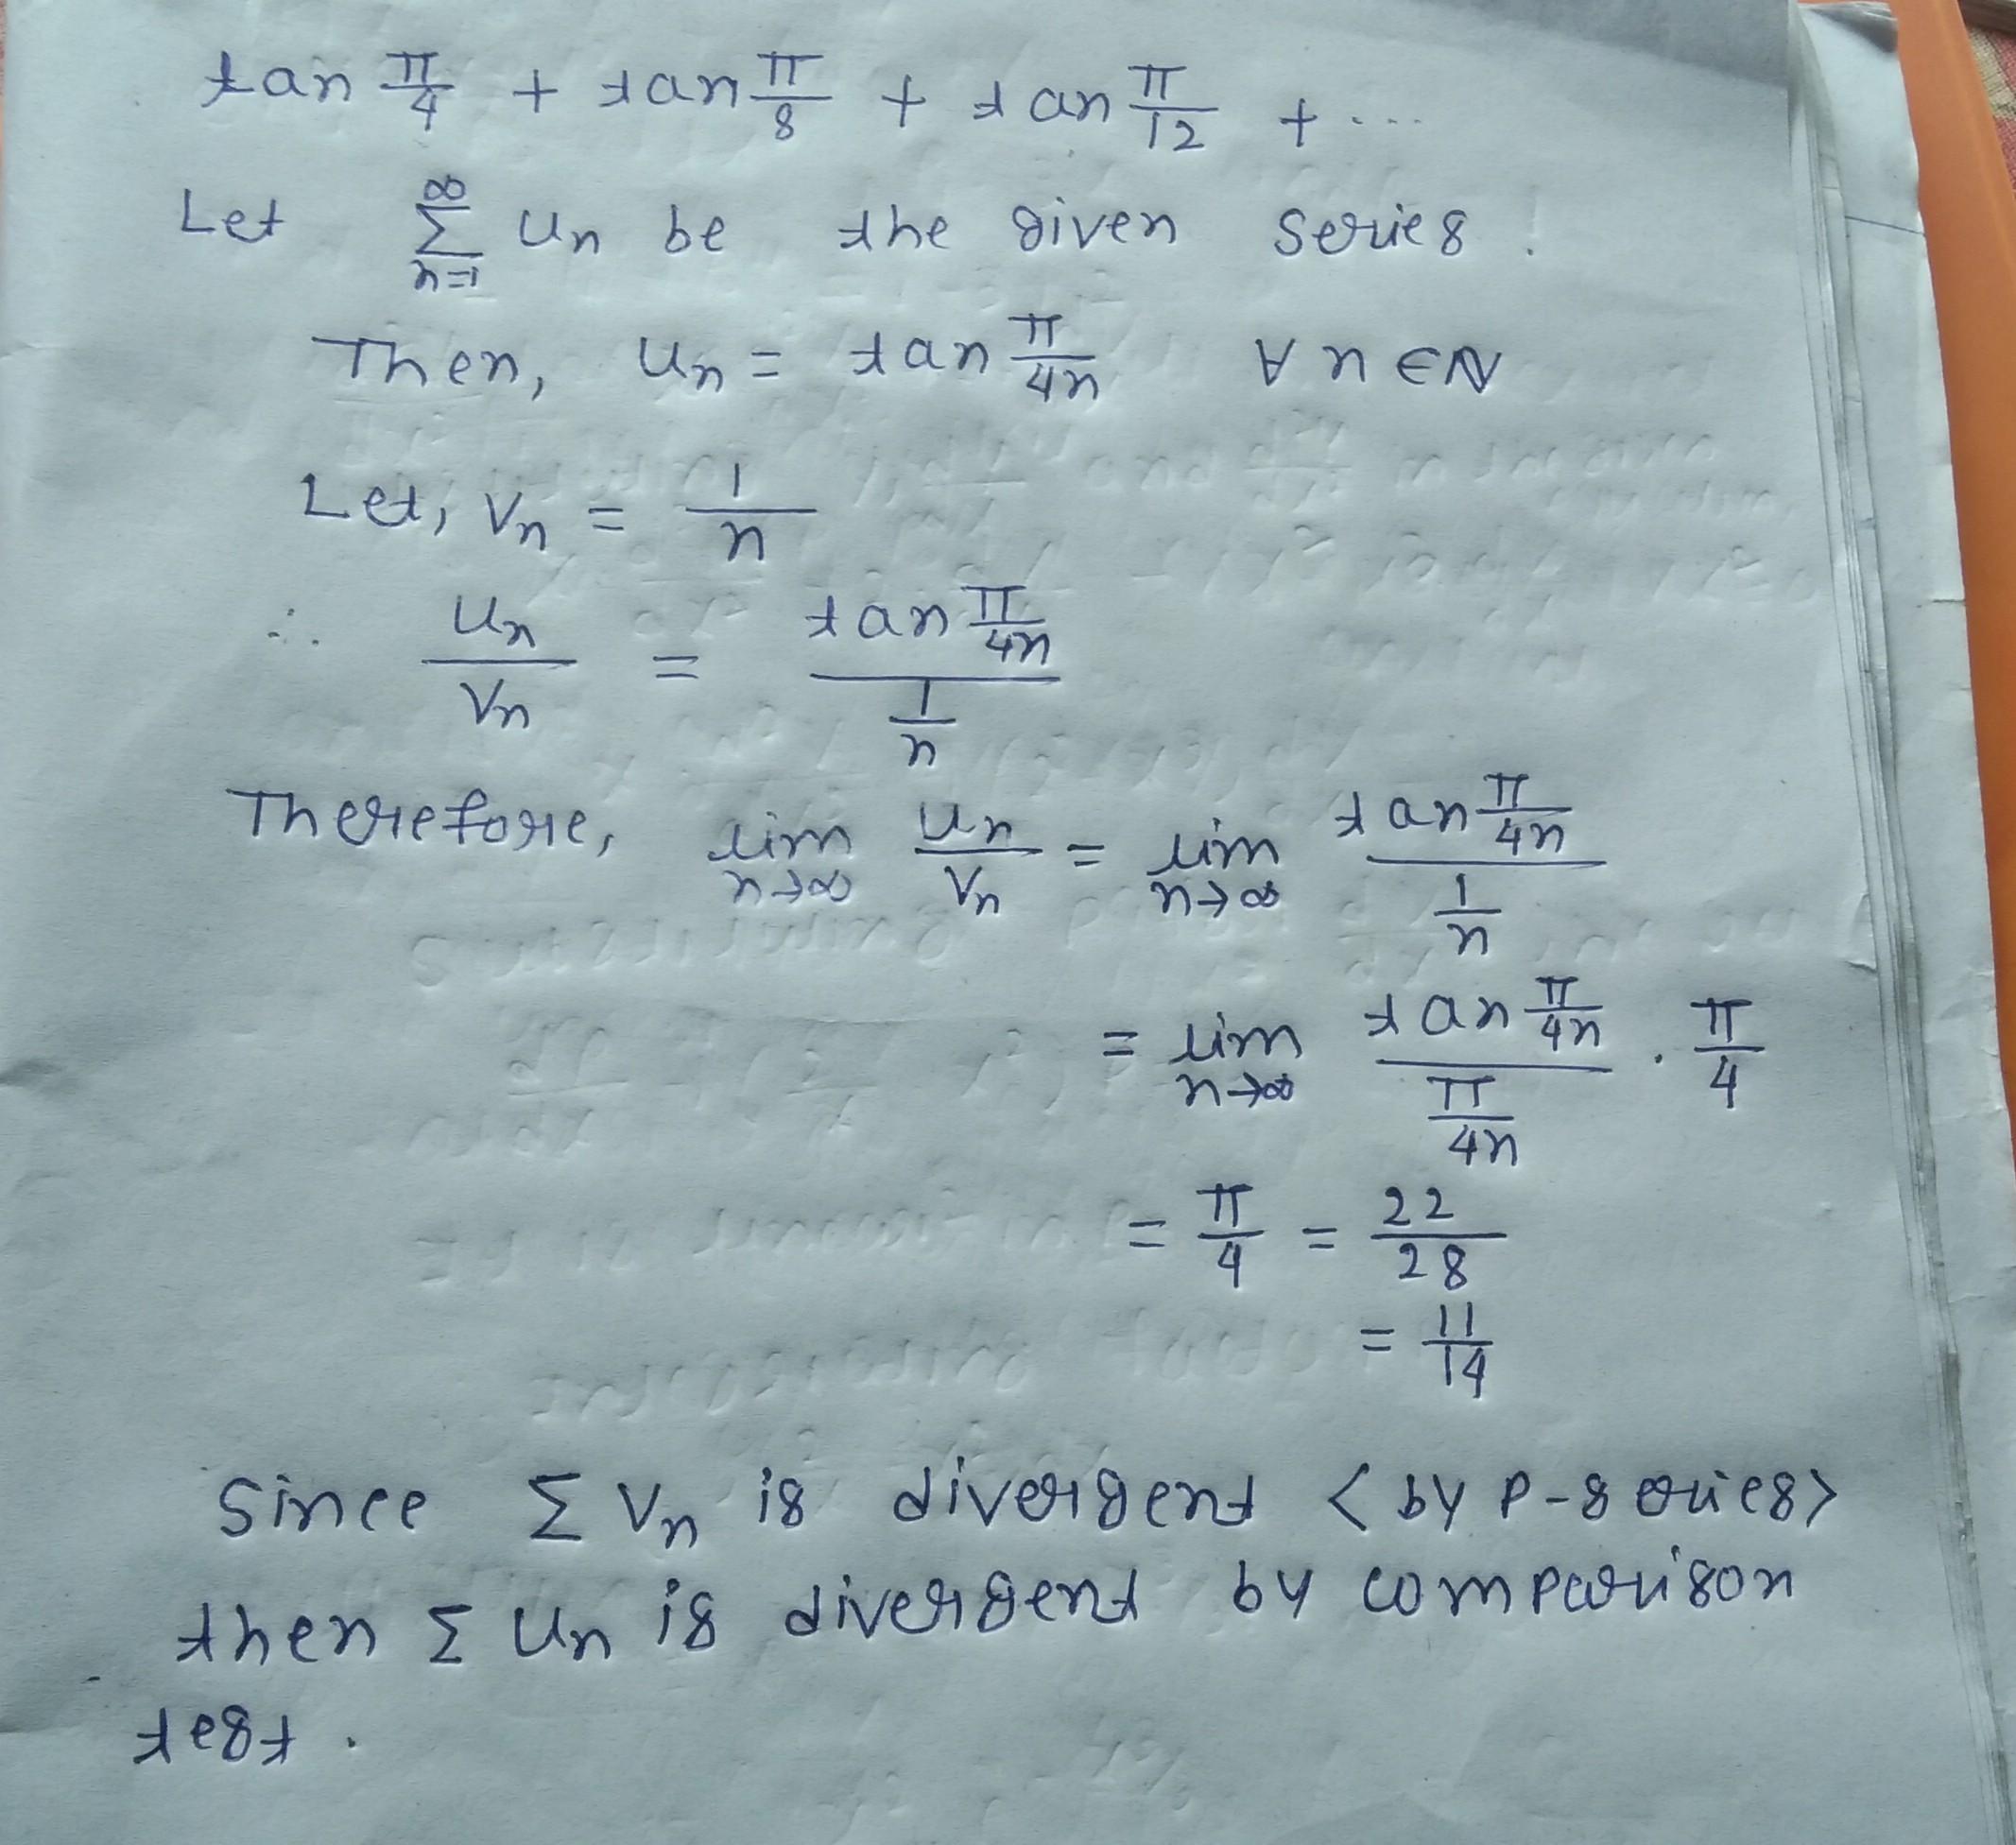 tan π/4 + tan π/8 + tan π/12 + ...
Let ∞∑n=1 un be the given series.
Then, un = tan π/4n ∀ n ∈ N
Let, vn = 1/n
∴ un/vn = (tan π/4n)/(1/n)
Therefore, lim n→∞ un/vn = lim n→∞ (tan π/4n)/(1/n)
= lim n→∞ (tan π/4n)/(π/4n) . π/4
= π/4 = 22/28
= 11/14
Since ∑ vn is divergent < by P-series>
then ∑ un is divergent by comparison
test.